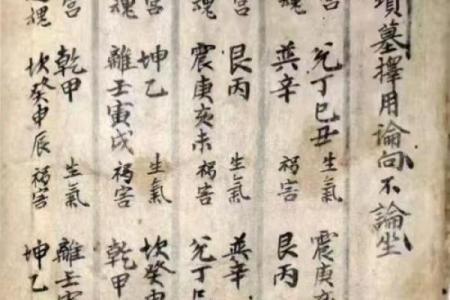 墓擇用論向不論坐
宮 兌丁巳丑 生氣 震庚
魂 巽辛 禍害 艮丙
宮 艮丙 生氣 巽辛
魂 震庚亥未 禍害 兌丁
宮 坤乙 生氣 坎癸申
魂 離壬寅戌 禍害 乾甲
宮 乾甲 生氣 離壬寅
魂 坎癸申辰 禍害 坤乙